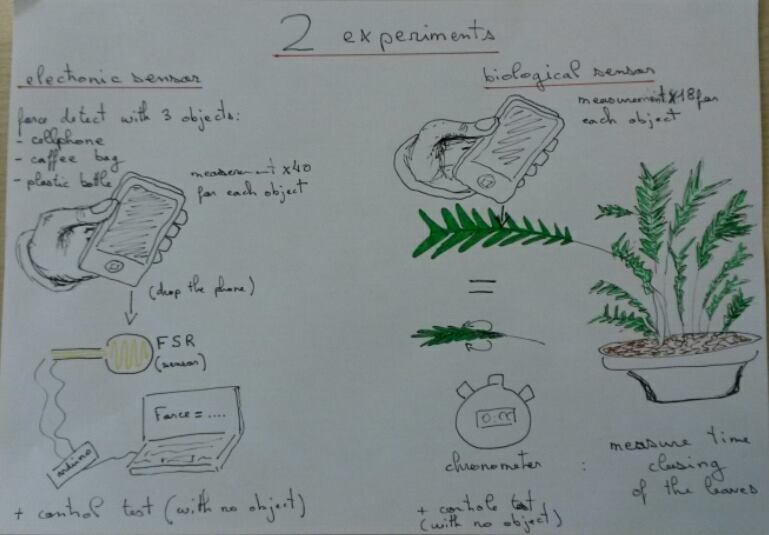 2 experiments
electronic sensor
force detect with 3 objects:
- cellphone
- coffee bag
- plastic bottle
measurement x40
for each object
(drop the phone)
FSR
(sensor)
Force = ....
arduino
+ control test (with no object)
biological sensor
measurement x18 for
each object
=
0:00
chronometer : measure time
closing
of the leaves
+ controle test
(with no object)